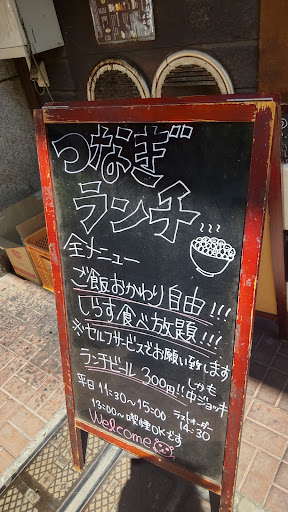 つなぎ
ランチ...
全メニュー
ご飯おかわり自由!!!
しらす食べ放題!!!
※セルフサービスでお願い致します
ランチビール 300円!! しかも中ジョッキ
平日 11:30~15:00 ラストオーダー 14:30
13:00~喫煙OKです
Welcome